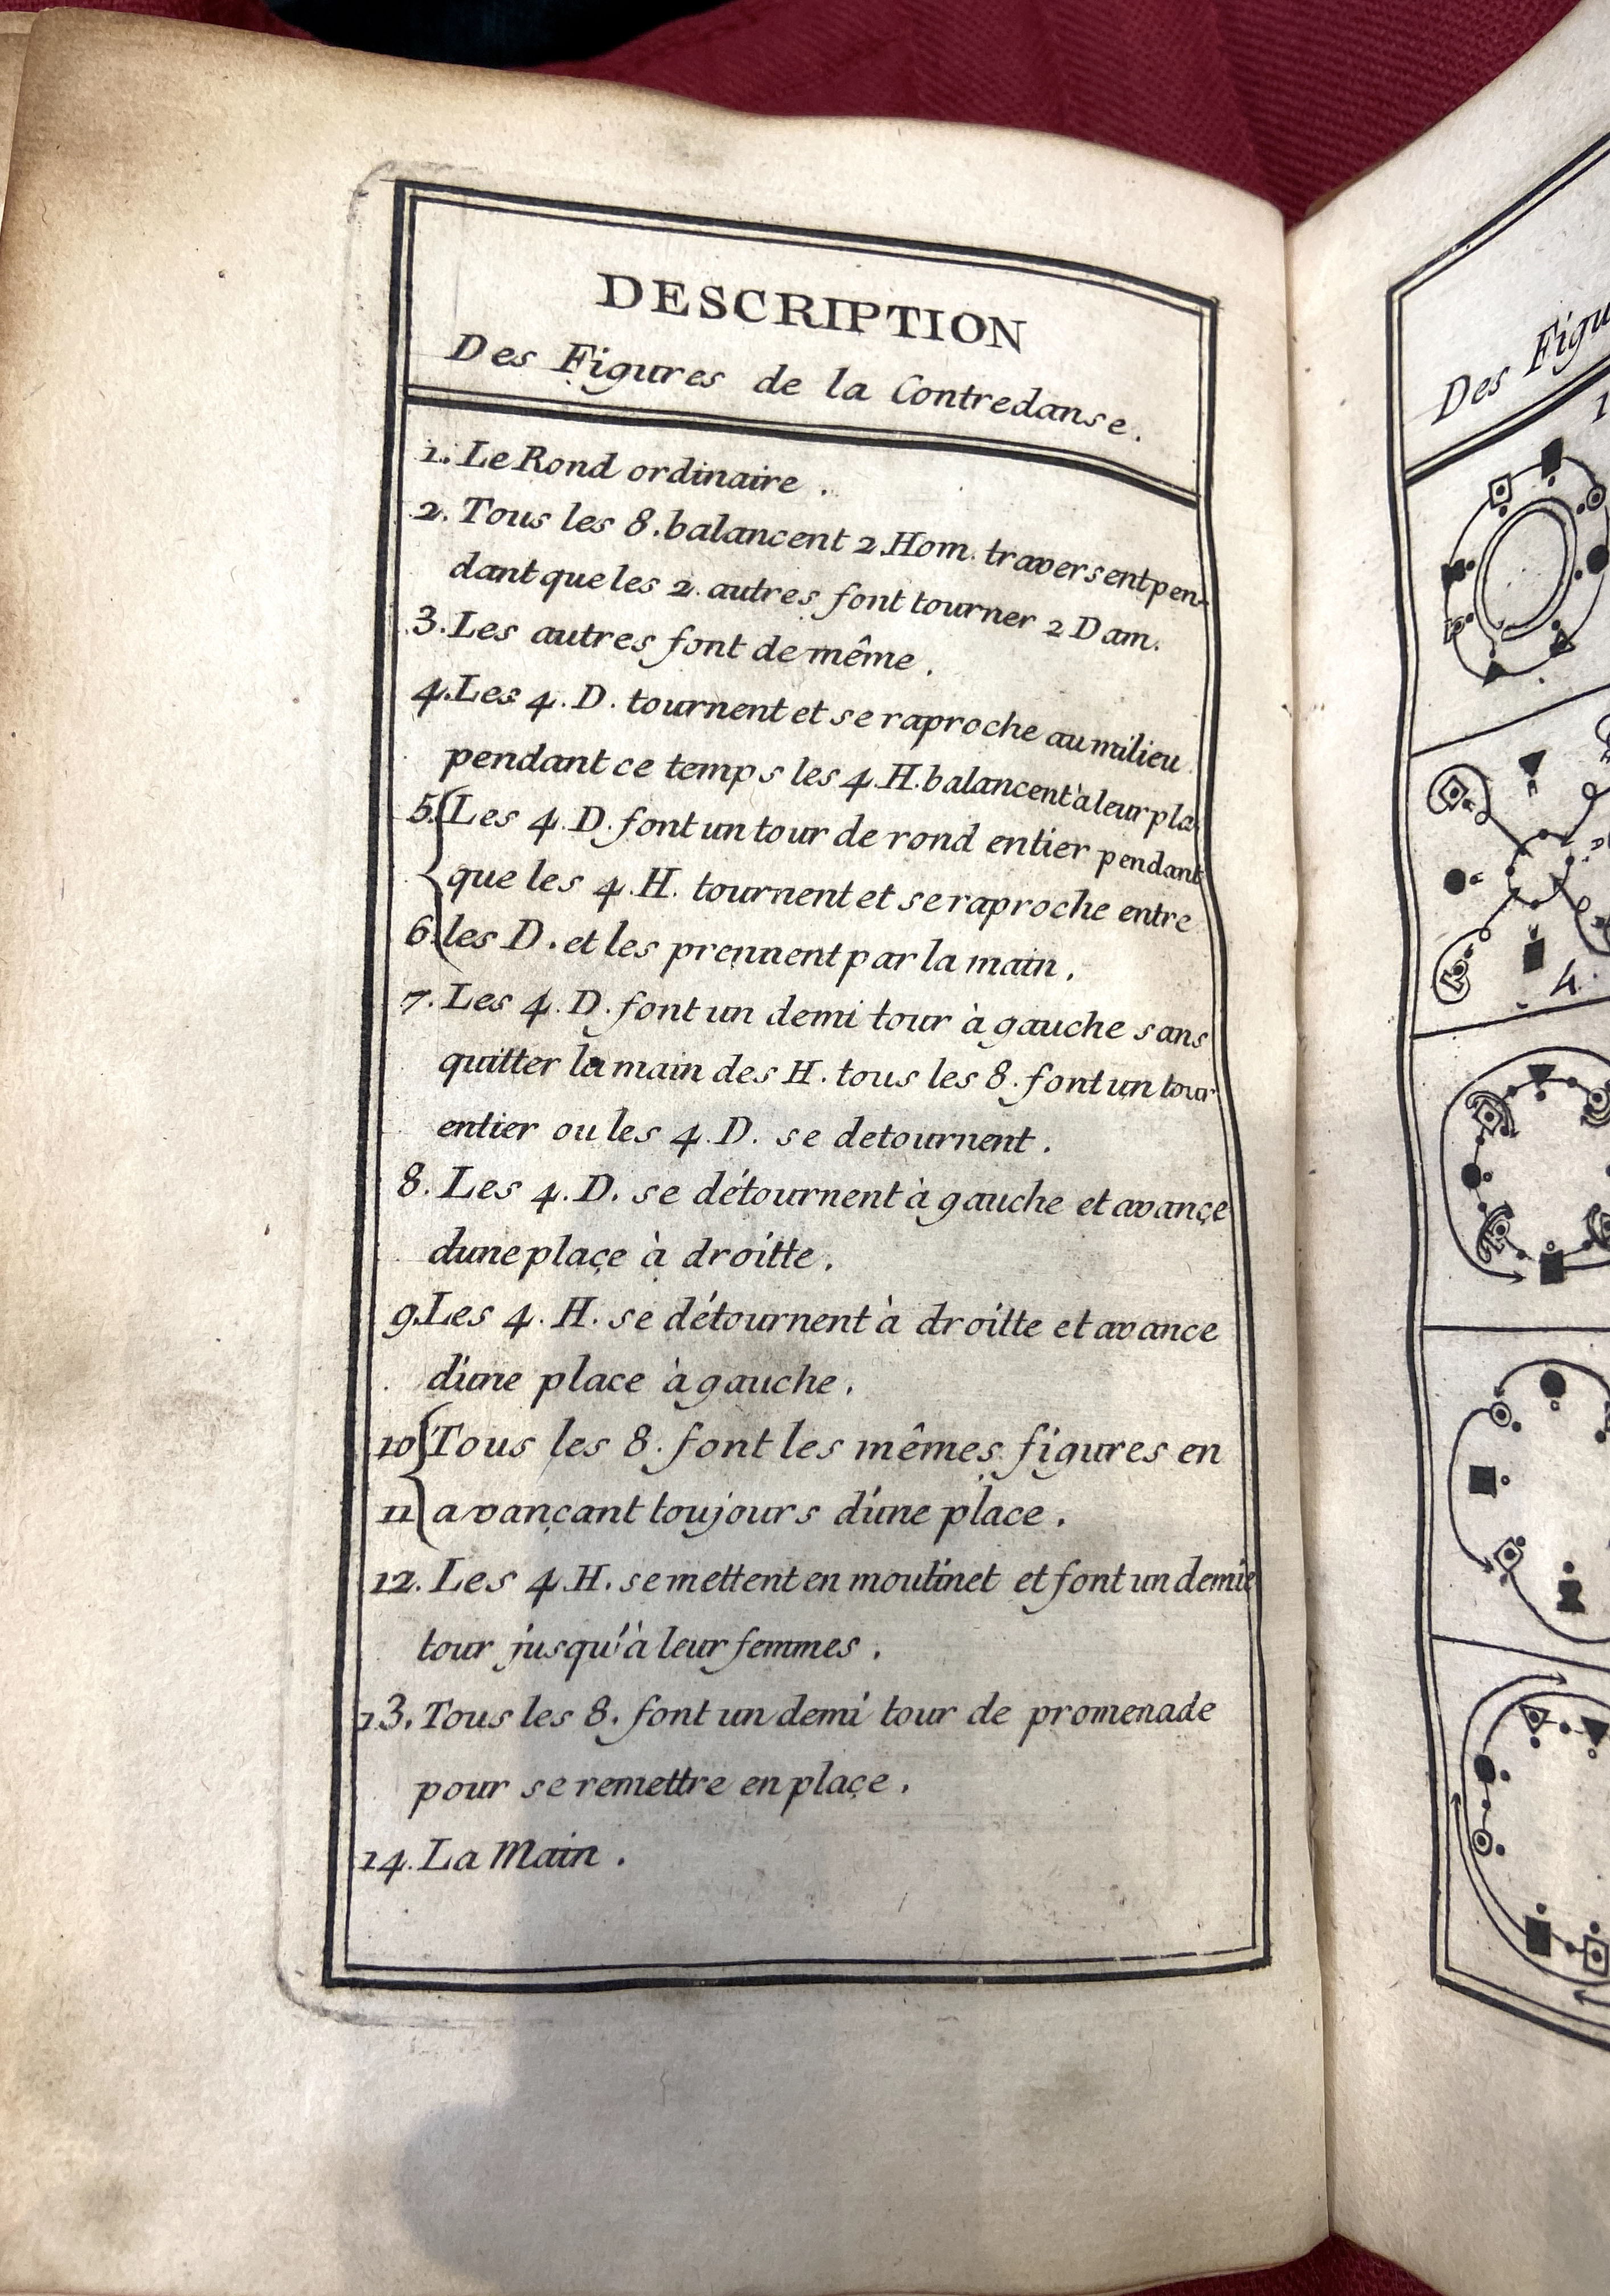 DESCRIPTION
Des Figures de la Contredanse.
1. Le Rond ordinaire.
2. Tous les 8. balancent 2 Hom. traversent pen-
dant que les 2. autres font tourner 2 Dam.
3. Les autres font de même.
4. Les 4. D. tournent et se raproche au milieu
pendant ce temps les 4. H. balancent à leur pla.
5. Les 4. D. font un tour de rond entier pendant
que les 4. H. tournent et se raproche entre
6. les D. et les prennent par la main.
7. Les 4. D. font un demi tour à gauche sans
quitter la main des H. tous les 8. font un tour
entier ou les 4. D. se detournent.
8. Les 4. D. se détournent à gauche et avançe
dune plaçe à droitte.
9. Les 4. H. se détournent à droitte et avance
d'une place à gauche.
10 Tous les 8. font les mêmes figures en
11 avançant toujours d'une place.
12. Les 4 H. se mettent en moulinet et font un demie
tour jusqu'à leur femmes.
13. Tous les 8. font un demi tour de promenade
pour se remettre en plaçe.
14. La Main.
Des Figu
1
4.